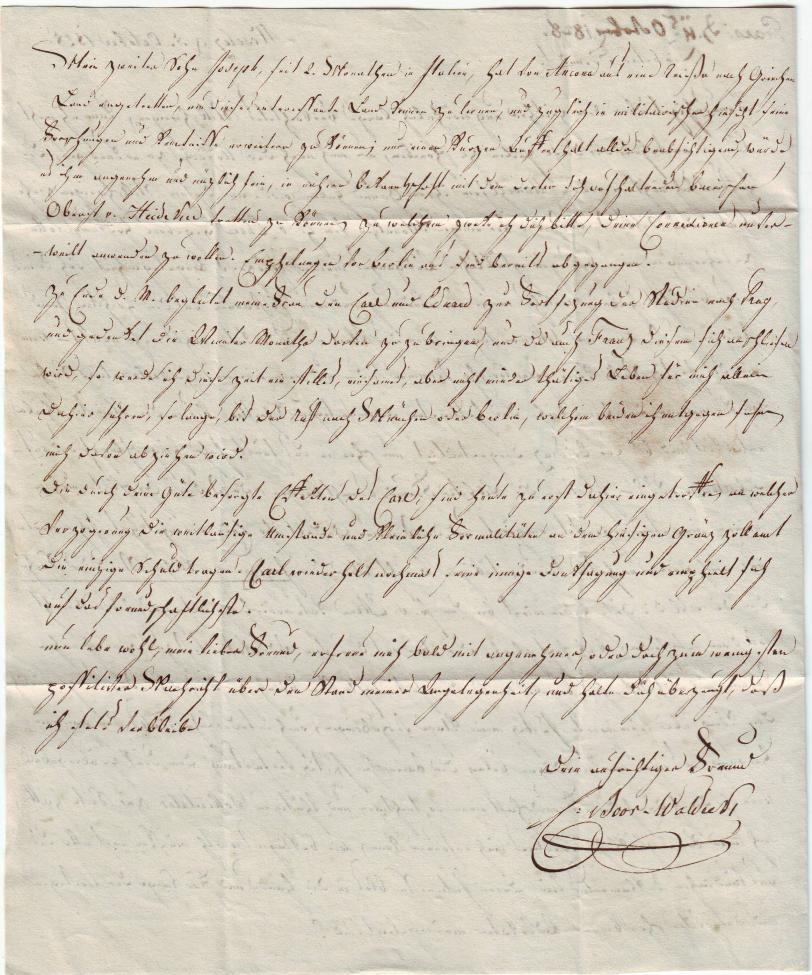 Mein zweiter Sohn Joseph, seit 2. Monathen in Italien, hat von Ancona aus eine Reise nach Griechen
Land angetretten, um dieses interessante Land kennen zu lernen, und zugleich in militairischer Hinsicht seine
Forschungen und Kenntnisse erweitern zu können; nur einen kurzen Auffenthalt allda beabsichtigend, würde
es ihm angenehm und nüzlich sein, in nähere bekanntschaft mit dem dorten sich aufhaltenden baierischen
Oberst v. Heidekke tretten zu können, zu welchem zwecke ich dich bitte, deine Connexionen unter-
-weilt anwenden zu wollen. Empfelungen von berlin aus sind bereits abgegangen.
Zu Ende d. M. begleitet meine Frau den Carl und Eduard zur Fortsezung der Studien nach Prag,
und gedenket die Winter Monathe dorten zu zubringen, und da auch Franz diesem sich anschliesen
wird, so werde ich diese zeit ein stilles, einsames, aber nicht minder thätiges Leben für mich allein
dahier führen, so lange, bis der Ruf nach München oder berlin, welchem beiden ich entgegen sehe,
mich davon abziehen wird.
Die durch deine Güte besorgte Effekten des Carl, sind heute zu erst dahier eingetroffen, an welcher
Verzögerung die weitläufige Umstände und kleinliche Formalitäten an dem hiesigen Gränz zollamt
die einzige Schuld tragen. Carl wiederholt nochmals seine innige Danksagung und empfielt sich
auf das freundschaftlichste.
nun lebe wohl, mein lieber Freund, erfreue mich bald mit angenehmer, oder doch zum wenigsten
possitiver Nachricht über den Stand meiner Angelegenheit, und halte dich überzeugt, daß
ich stets verbleibe
Dein aufrichtiger Freund
C: Boos-Waldeck